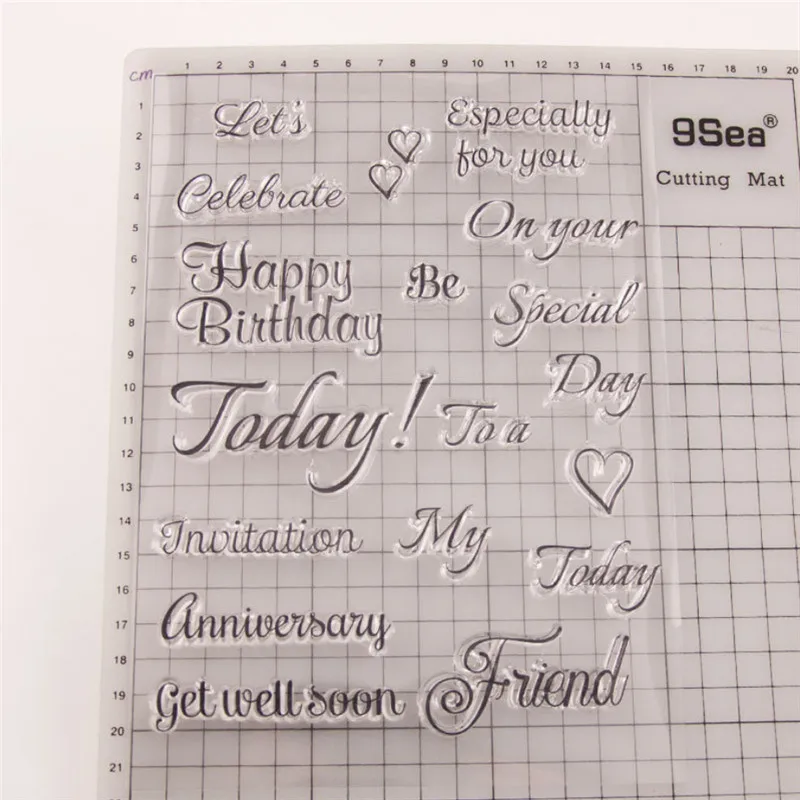 cm
1 2 3 4 5 6 7 8 9 10 11 12 13 14 15 16 17 18 19 20
1
2
3
4
5
6
7
8
9
10
11
12
13
14
15
16
17
18
19
20
21
9Sea®
Cutting Mat
Let's
Celebrate
Happy
Birthday
Today!
Invitation
Anniversary
Get well soon
Especially
for you
On your
Be
Special
Day
To a
My
Today
Friend